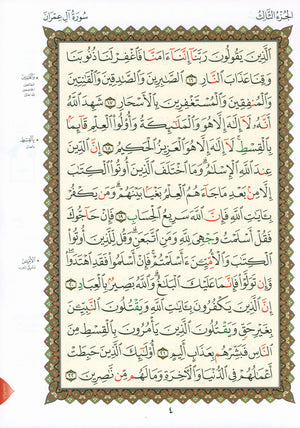 الجزء الثالث
سورة آل عمران
الذين يقولون ربنا إننا ءامنا فاغفر لنا ذنوبنا
وقنا عذاب النار ١٦ الصبرين والصدقين والقنتين
والمنفقين والمستغفرين بالأسحار ١٧ شهد الله
أنه لا إله إلا هو والملئكة وأولوا العلم قائما
بالقسط لا إله إلا هو العزيز الحكيم ١٨ إن الدين
عند الله الإسلم وما اختلف الذين أوتوا الكتب
إلا من بعد ما جاءهم العلم بغيا بينهم ومن يكفر
بءايت الله فإن الله سريع الحساب ١٩ فإن حاجوك
فقل أسلمت وجهي لله ومن اتبعن وقل للذين أوتوا
الكتب والأمين ءأسلمتم فإن أسلموا فقد اهتدوا
وإن تولوا فإنما عليك البلغ والله بصير بالعباد ٢٠
إن الذين يكفرون بءايت الله ويقتلون النبين
بغير حق ويقتلون الذين يأمرون بالقسط من
الناس فبشرهم بعذاب أليم ٢١ أولئك الذين حبطت
أعملهم في الدنيا والآخرة وما لهم من نصرين ٢٢
٤